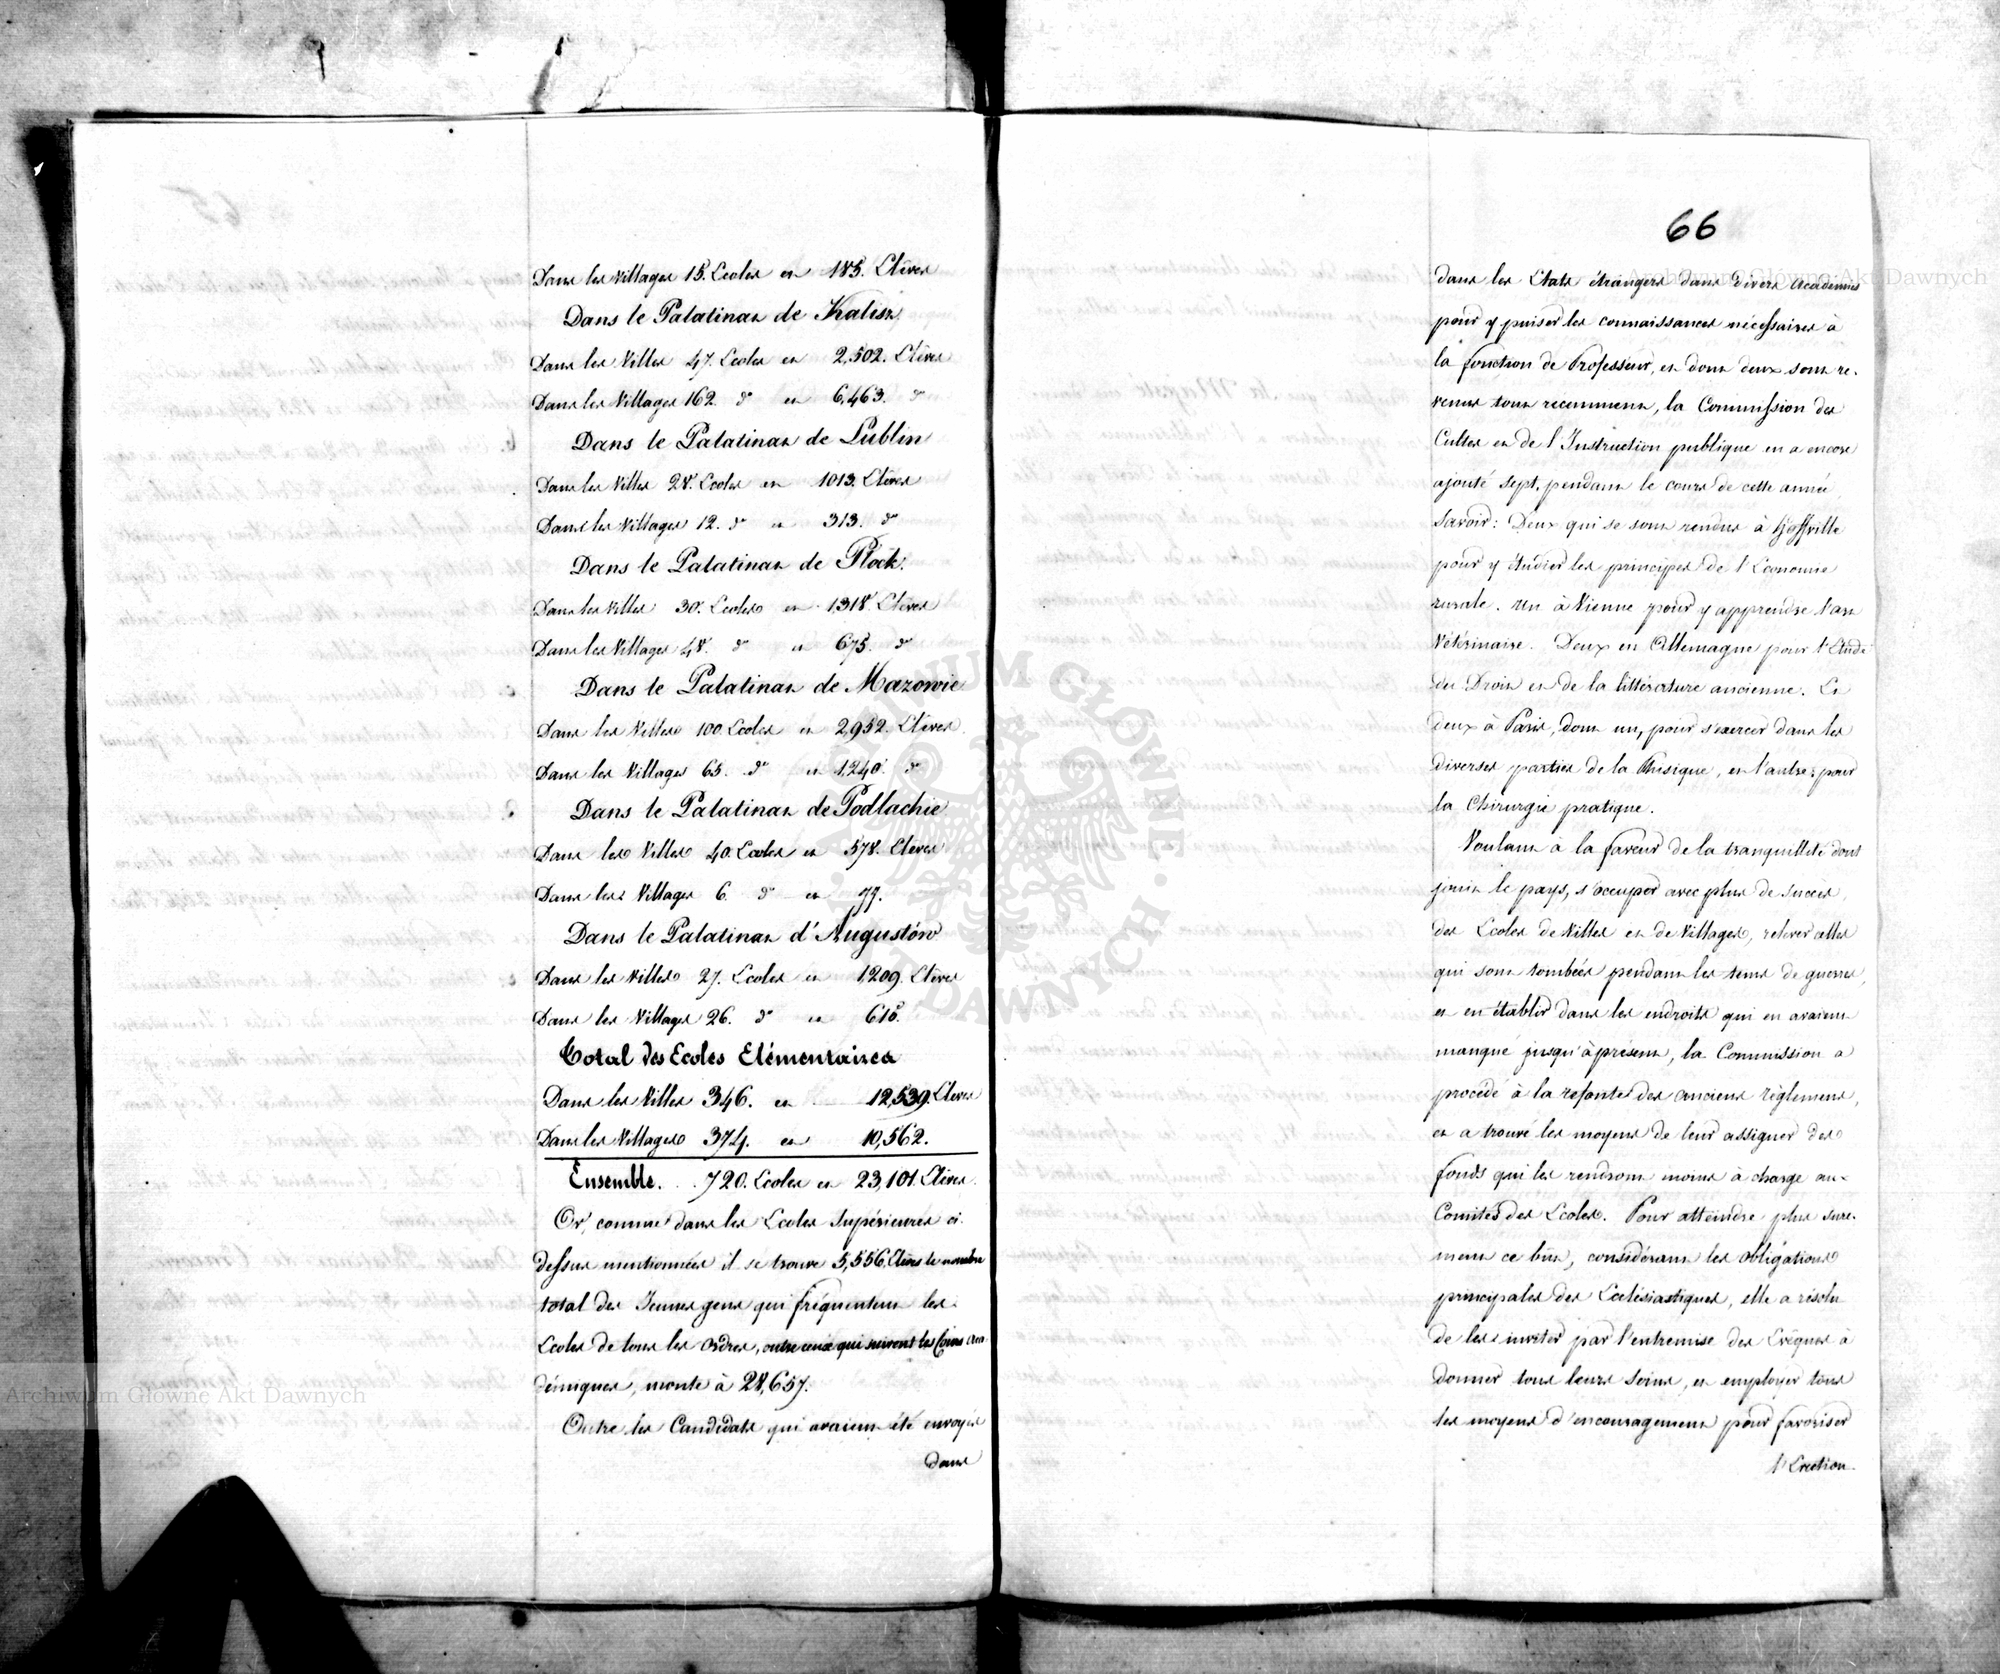 Dans les Villages 15. Ecoles et 185. Elèves
Dans le Palatinat de Kalisz
Dans les Villes 47. Ecoles et 2,502. Elèves
Dans les Villages 162. do et 6,463. do
Dans le Palatinat de Lublin
Dans les Villes 28. Ecoles et 1013. Elèves
Dans les Villages 12. do et 313. do
Dans le Palatinat de Płock.
Dans les Villes 30. Ecoles et 1,318. Elèves
Dans les Villages 48. do et 675. do
Dans le Palatinat de Mazowie
Dans les Villes 100. Ecoles et 2,952. Elèves
Dans les Villages 65. do et 1,240. do
Dans le Palatinat de Podlachie
Dans les Villes 40. Ecoles et 578. Elèves
Dans les Villages 6. do et 77.
Dans le Palatinat d'Augustów
Dans les Villes 27. Ecoles et 1,209. Elèves
Dans les Villages 26. do et
Total des Ecoles Elémentaires
Dans les Villes 346. et 12,539. Elèves
Dans les Villages 374. et 10,562.
Ensemble. 720. Ecoles et 23,101. Elèves.
Or, comme dans les Ecoles Supérieures ci-
dessus mentionnées il se trouve 5,556. Elèves le nombre
total des Jeunes gens qui fréquentent les
Ecoles de tous les ordres, outre ceux qui suivent les Cours Aca-
démiques, monte à 28,657.
Outre les Candidats qui avaient été envoyés
dans
66
dans les Etats étrangers dans divers Académies
pour y puiser les connaissances nécessaires à
la fonction de Professeur, et dont deux sont re-
venus tout recemment, la Commission des
Cultes et de l'Instruction publique en a encore
ajouté sept, pendant le cours de cette année
Savoir: Deux qui se sont rendus à Hoffville
pour y étudier les principes de l'Economie
rurale. Un à Vienne pour y apprendre l'art
Vétérinaire. Deux en Allemagne pour l'Etude
du Droit et de la littérature ancienne. Et
deux à Paris, dont un, pour s'exercer dans les
diverses parties de la Phisique, et l'autre: pour
la Chirurgie pratique.
Voulant à la faveur de la tranquillité dont
jouit le pays, s'occuper avec plus de succès,
des Ecoles de Villes et de Villages, relever celles
qui sont tombées pendant les tems de guerres,
et en établir dans les endroits qui en avaient
manqué jusqu'à présent, la Commission a
procédé à la refonte des anciens règlemens,
et a trouvé les moyens de leur assigner des
fonds qui les rendront moins à charge au-
Comités des Ecoles. Pour atteindre plus sure-
ment ce but, considérant les obligations
principales des Ecclésiastiques, elle a résolu
de les inviter par l'entremise des Evêques à
donner tous leurs Soins, et employer tous
les moyens d'encouragement pour favoriser
l'Erection
Archiwum Główne Akt Dawnych
Archiwum Główne Akt Dawnych
ARCHIWUM GŁÓWNE AKT DAWNYCH